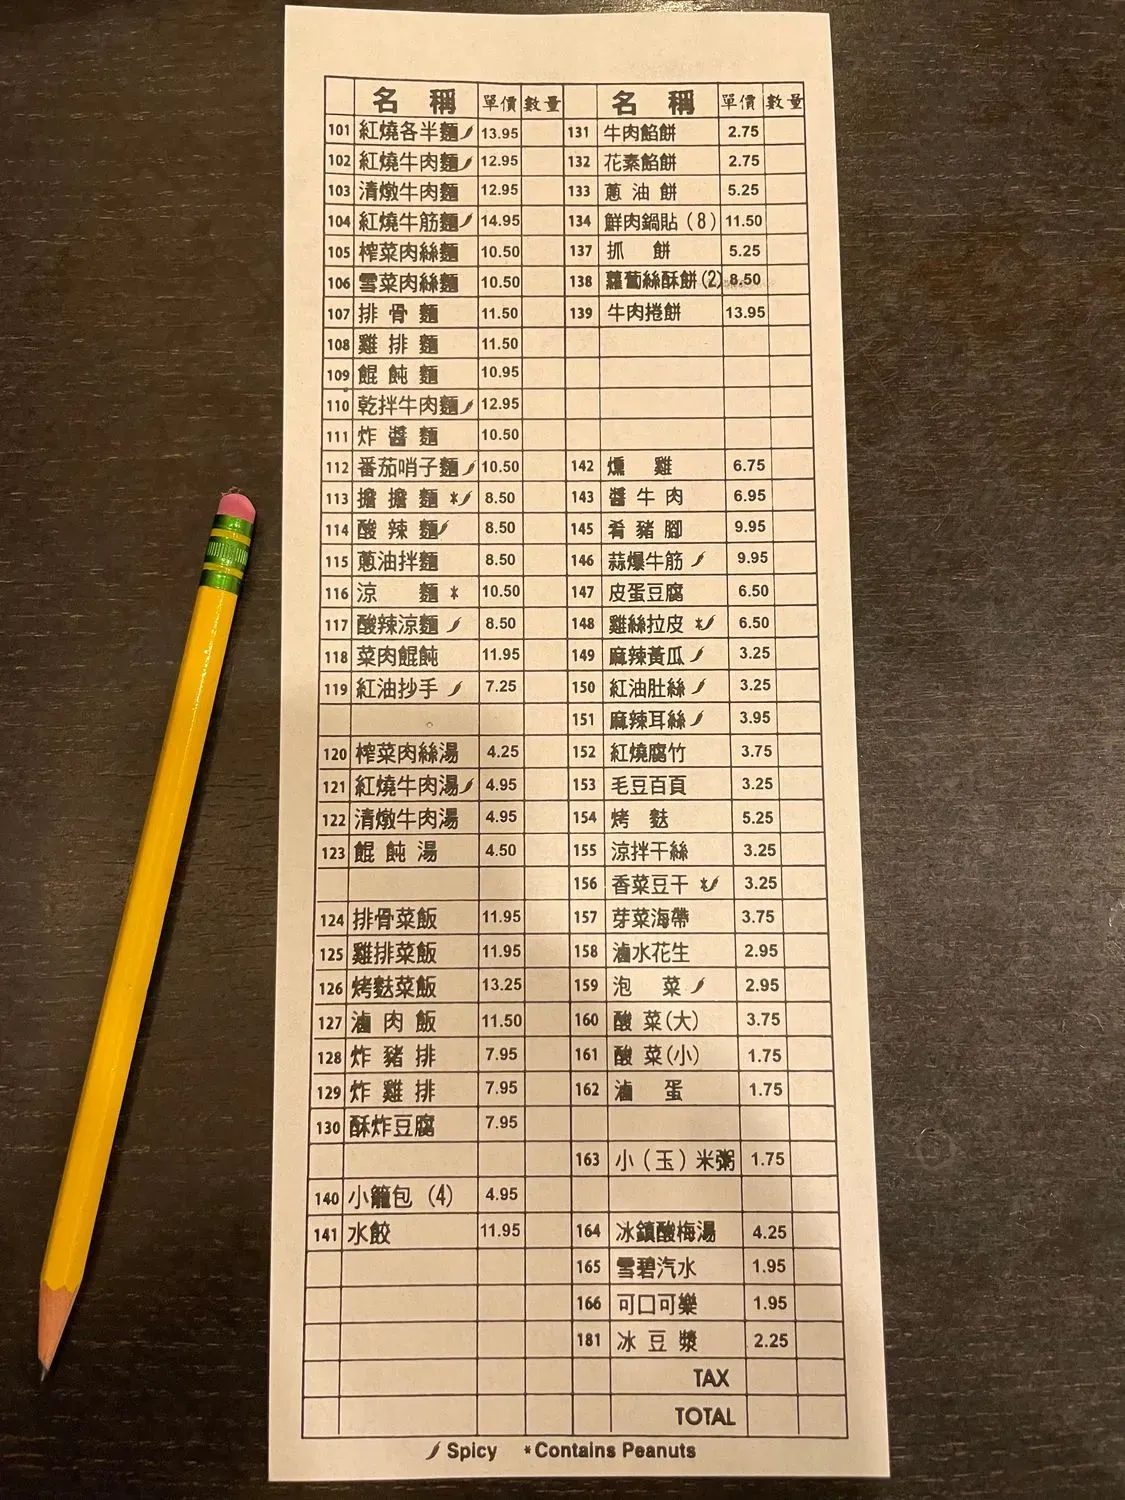 名 稱 單價 數量
101 紅燒各半麵 13.95
102 紅燒牛肉麵 12.95
103 清燉牛肉麵 12.95
104 紅燒牛筋麵 14.95
105 榨菜肉絲麵 10.50
106 雪菜肉絲麵 10.50
107 排骨麵 11.50
108 雞排麵 11.50
109 餛飩麵 10.95
110 乾拌牛肉麵 12.95
111 炸醬麵 10.50
112 番茄哨子麵 10.50
113 擔擔麵 * 8.50
114 酸辣麵 8.50
115 蔥油拌麵 8.50
116 涼麵 * 10.50
117 酸辣涼麵 8.50
118 菜肉餛飩 11.95
119 紅油抄手 7.25
120 榨菜肉絲湯 4.25
121 紅燒牛肉湯 4.95
122 清燉牛肉湯 4.95
123 餛飩湯 4.50
124 排骨菜飯 11.95
125 雞排菜飯 11.95
126 烤麩菜飯 13.25
127 滷肉飯 11.50
128 炸豬排 7.95
129 炸雞排 7.95
130 酥炸豆腐 7.95
140 小籠包 (4) 4.95
141 水餃 11.95
名 稱 單價 數量
131 牛肉餡餅 2.75
132 花素餡餅 2.75
133 蔥油餅 5.25
134 鮮肉鍋貼 (8) 11.50
137 抓餅 5.25
138 蘿蔔絲酥餅 (2) 8.50
139 牛肉捲餅 13.95
142 燻雞 6.75
143 醬牛肉 6.95
145 肴豬腳 9.95
146 蒜爆牛筋 9.95
147 皮蛋豆腐 6.50
148 雞絲拉皮 * 6.50
149 麻辣黃瓜 3.25
150 紅油肚絲 3.25
151 麻辣耳絲 3.95
152 紅燒腐竹 3.75
153 毛豆百頁 3.25
154 烤麩 5.25
155 涼拌干絲 3.25
156 香菜豆干 * 3.25
157 芽菜海帶 3.75
158 滷水花生 2.95
159 泡菜 2.95
160 酸菜(大) 3.75
161 酸菜(小) 1.75
162 滷蛋 1.75
163 小(玉)米粥 1.75
164 冰鎮酸梅湯 4.25
165 雪碧汽水 1.95
166 可口可樂 1.95
181 冰豆漿 2.25
TAX
TOTAL
Spicy *Contains Peanuts